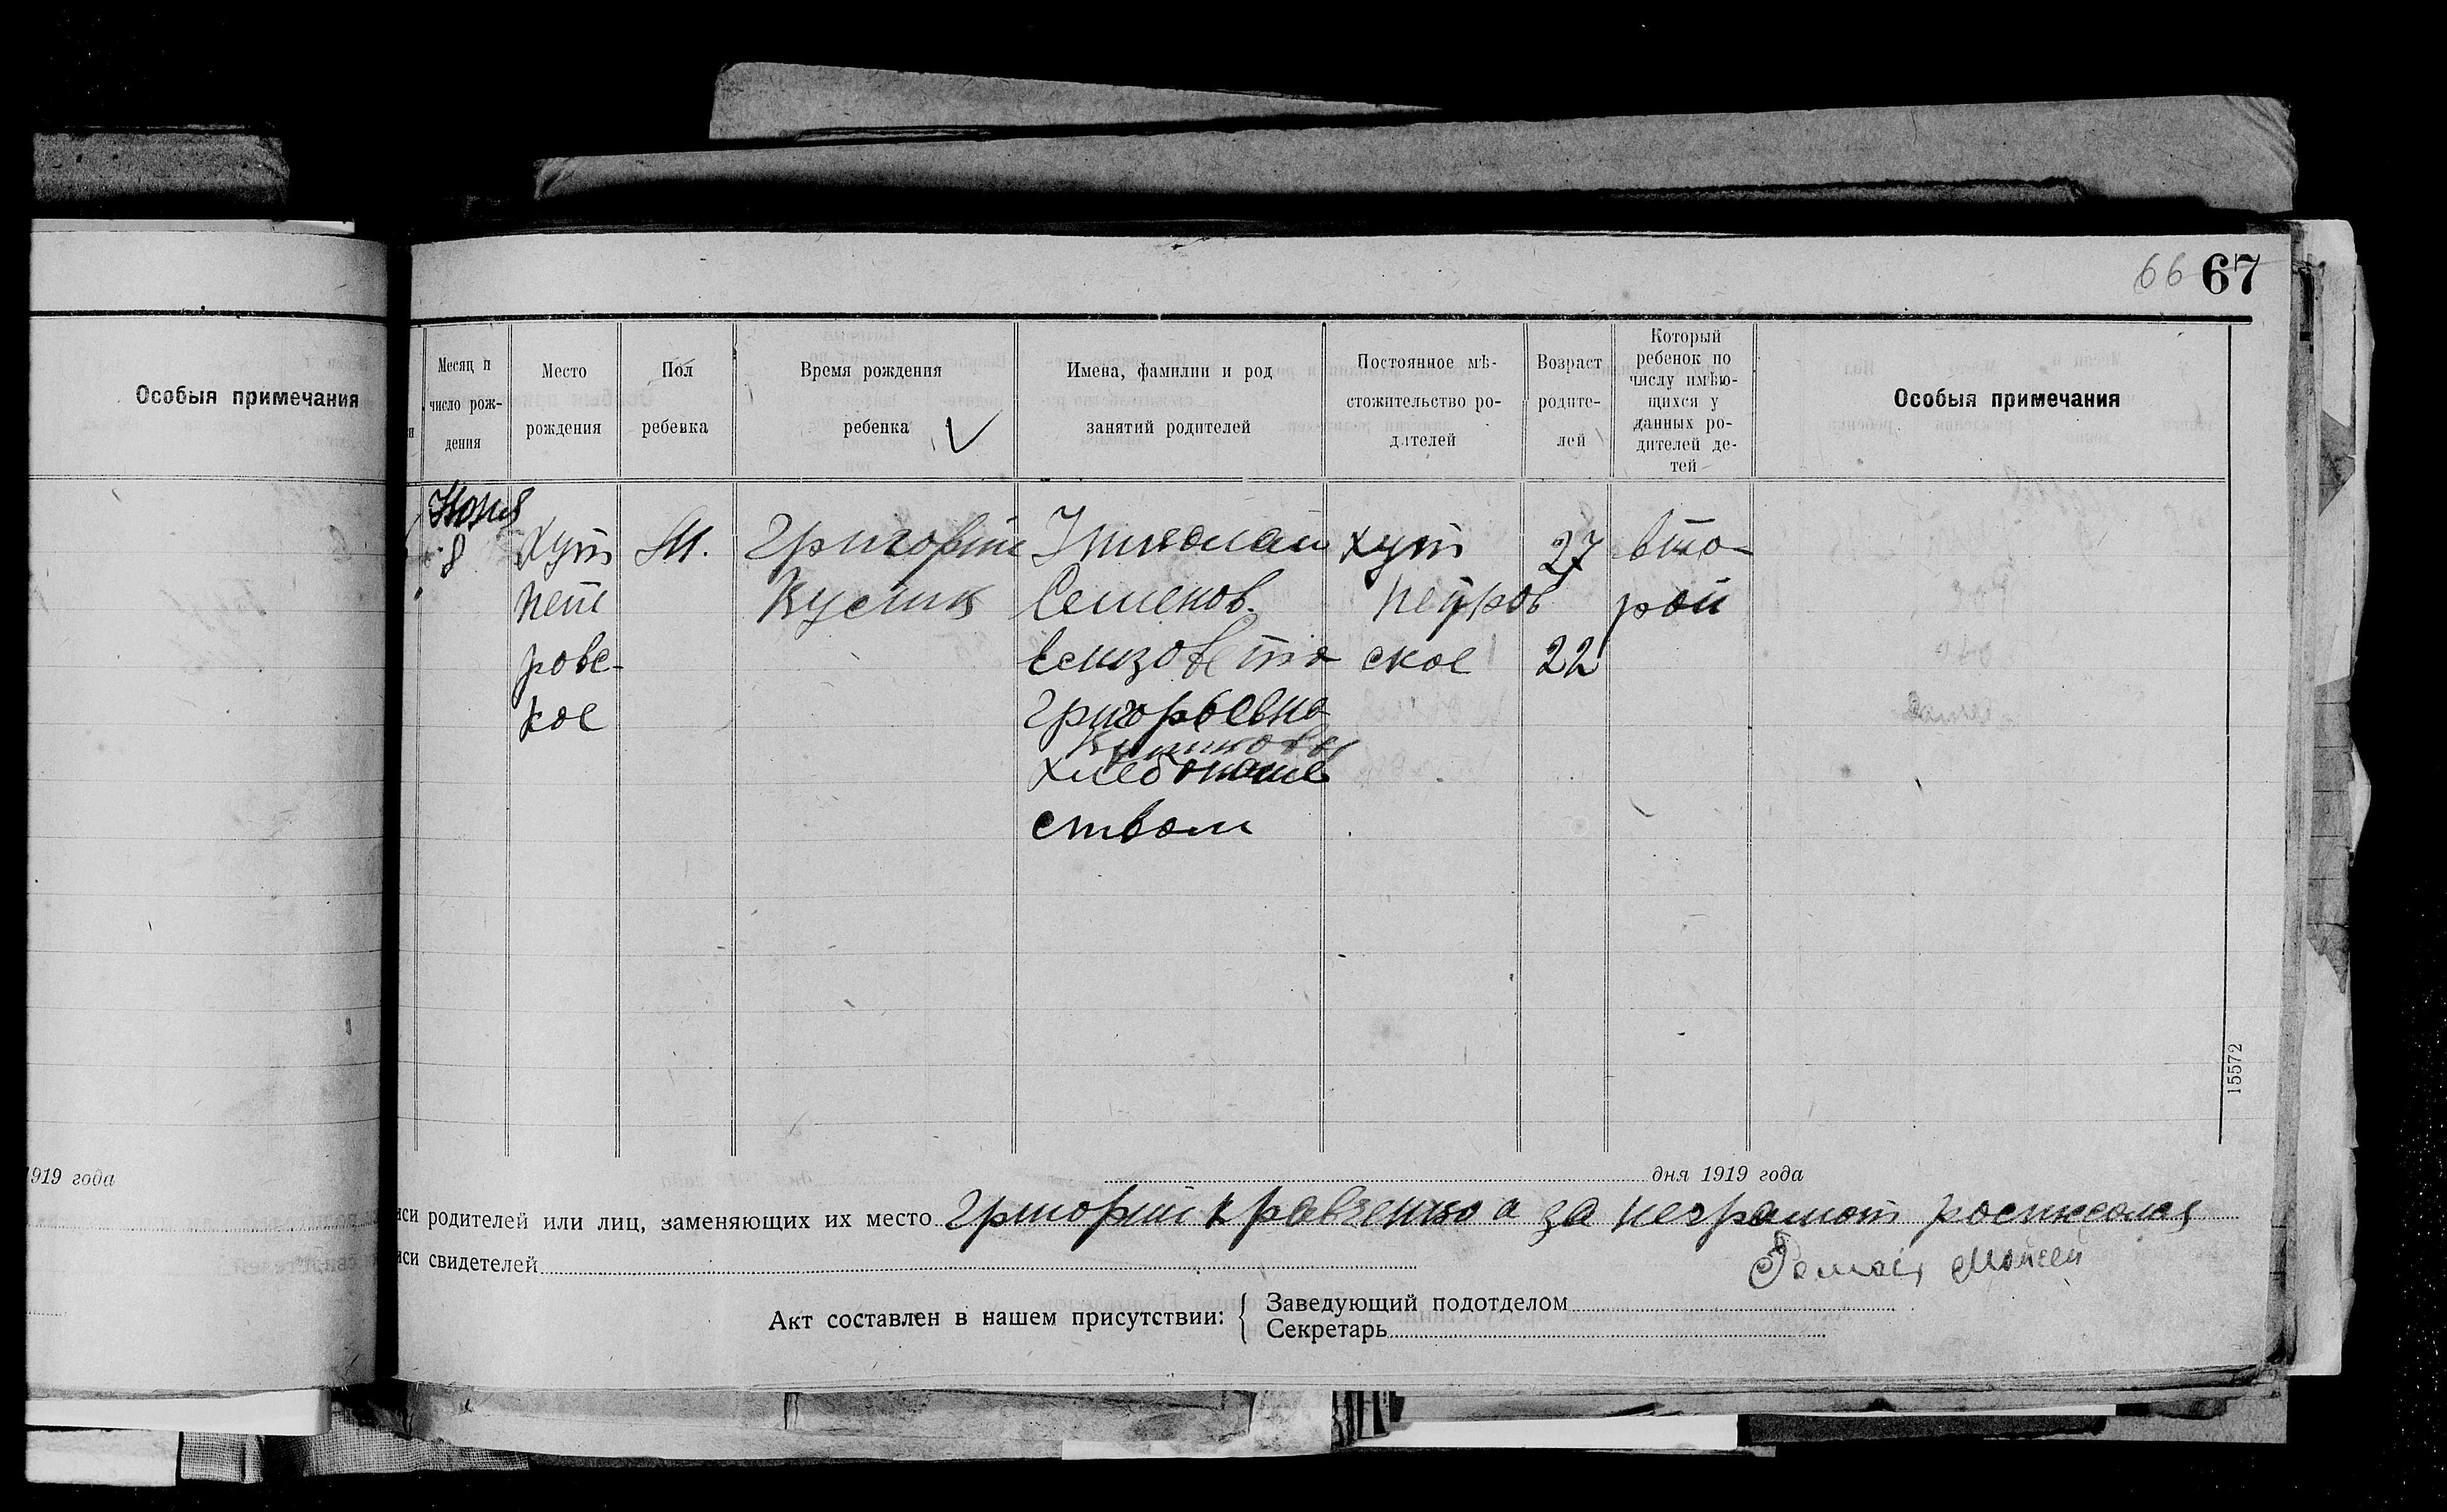 66 67
Особыя примечания
Месяц и число рождения
Место рождения
Пол ребенка
Время рождения ребенка
Имена, фамилии и род занятий родителей
Постоянное мѣстожительство родителей
Возраст родителей
Который ребенок по числу имѣющихся у данных родителей детей
Особыя примечания
8
Хут Пет ровс- кое
М.
Григорий
Семенов.
Елизовета
Григорьевна
хлебопаше
ством
хут Петров ское
27
22
вто-
рой
15572
1919 года
дня 1919 года
иси родителей или лиц, заменяющих их место Григорий Кравченко а за неграмот
иси свидетелей
Моисей
Акт составлен в нашем присутствии:
Заведующий подотделом
Секретарь